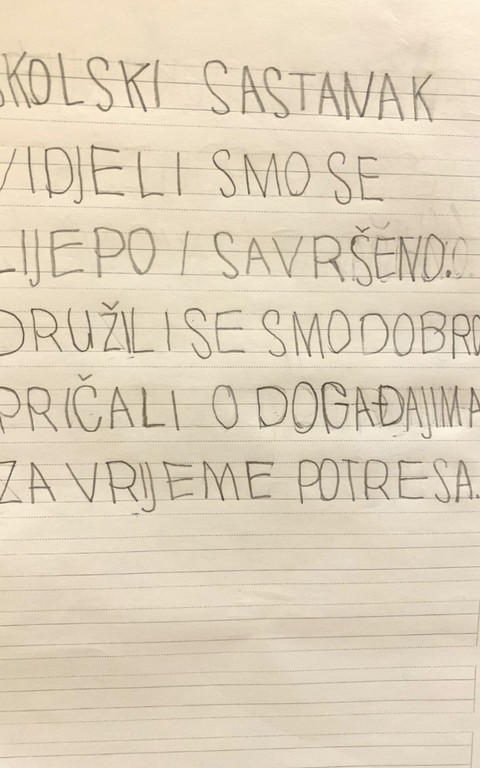 ŠKOLSKI SASTANAK
VIDJELI SMO SE
LIJEPO I SAVRŠENO.
DRUŽILI SE SMO DOBRO
PRIČALI O DOGAĐAJIMA
ZA VRIJEME POTRESA.